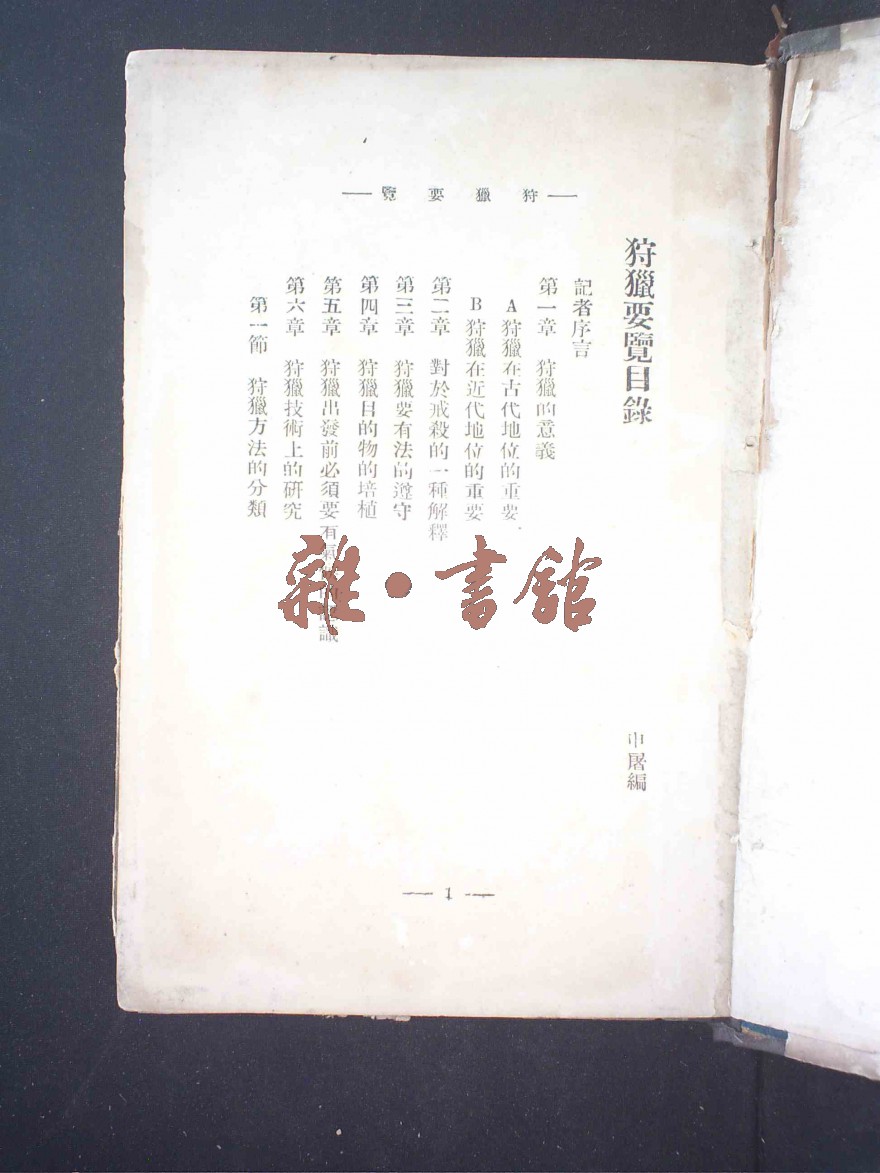 狩獵要覽
狩獵要覽目錄
申屠編
記者序言
第一章 狩獵的意義
A 狩獵在古代地位的重要
B 狩獵在近代地位的重要
第二章 對於戒殺的一種解釋
第三章 狩獵要有法的遵守
第四章 狩獵目的物的培植
第五章 狩獵出發前必須要有氣識
第六章 狩獵技術上的研究
第一節 狩獵方法的分類
雜·書館
1